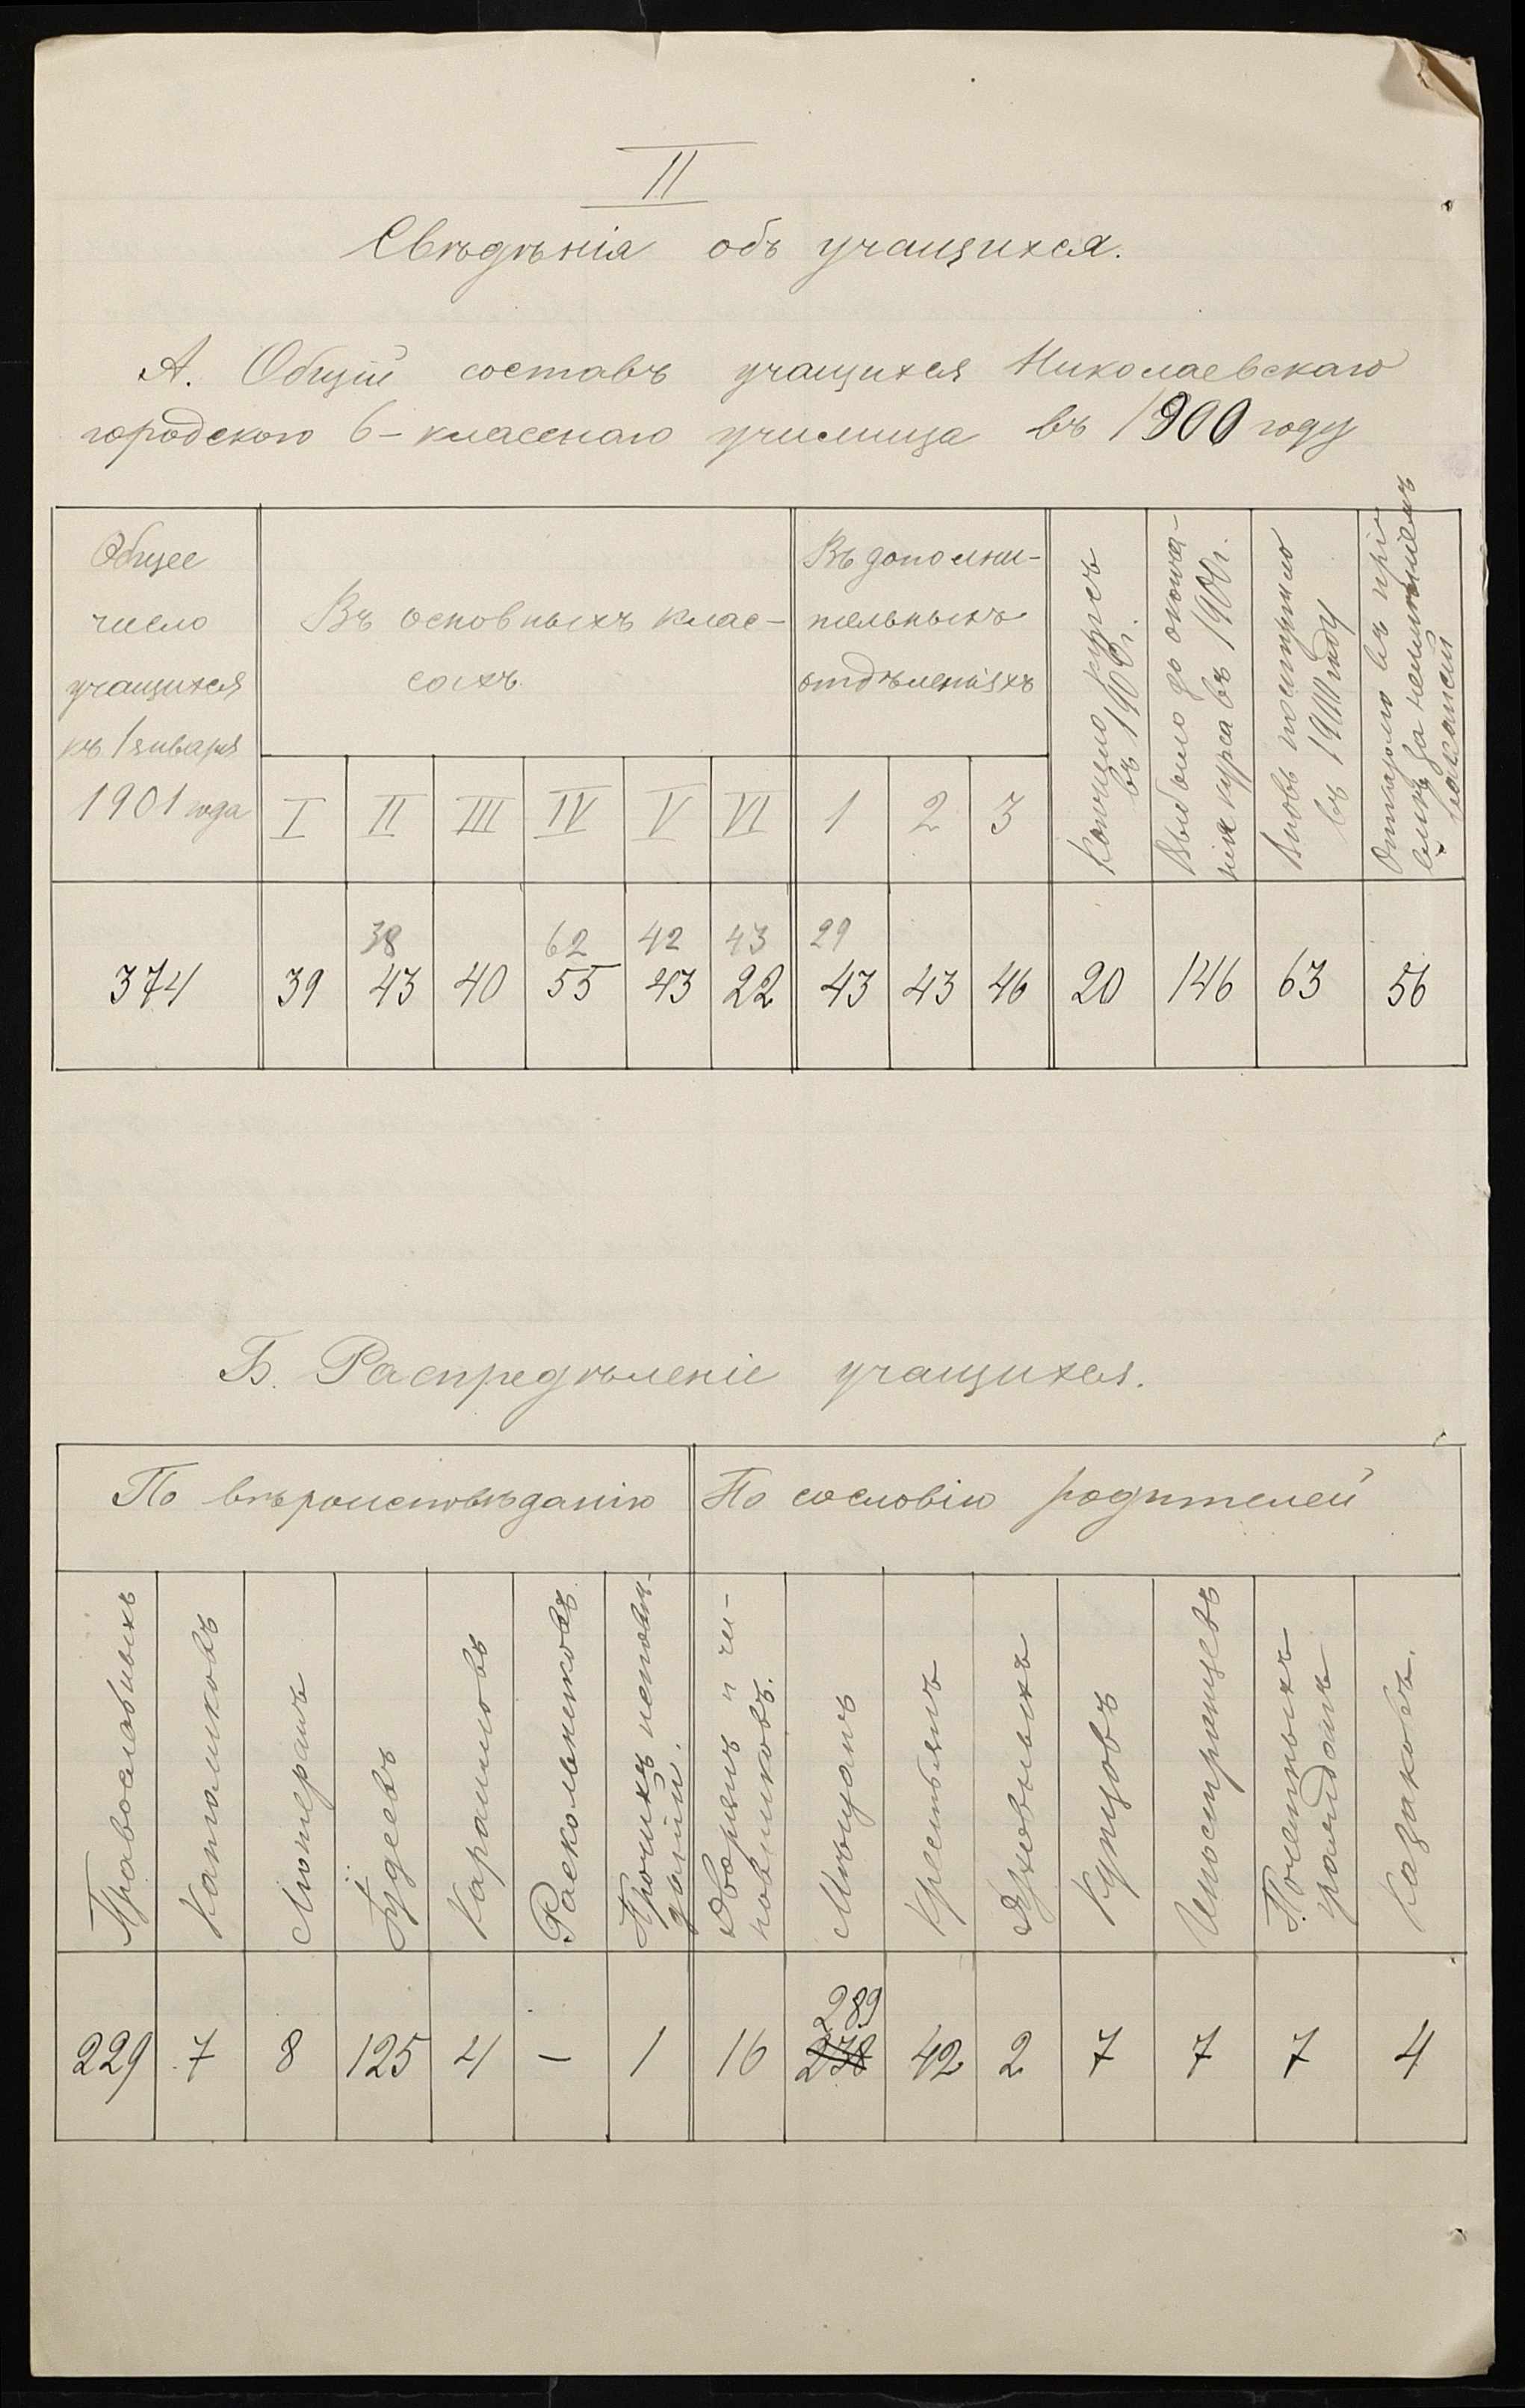 II
Свѣдѣнія объ учащихся.
А. Общій составъ учащихся Николаевскаго
городского 6-класснаго училища въ 1900 году
Общее
число
учащихся
къ 1 января
1901 года
Въ основныхъ клас-
сахъ.
Въ дополни-
тельныхъ
отдѣленіяхъ
Кончило курсъ
въ 1900 г.
Выбыло до оконча-
нія курса въ 1900 г.
Вновь поступило
въ 1900 году
Отказано въ прі-
емѣ за неимѣніемъ
вакансій
I II III IV V VI 1 2 3
38 62 42 43 29
374 39 43 40 55 43 22 43 43 46 20 146 63 56
Б. Распредѣленіе учащихся.
По вѣроисповѣданію По сословію родителей
Православныхъ
Католиковъ
Лютеранъ
Іудеевъ
Караимовъ
Раскольниковъ
Прочихъ исповѣ-
даній.
Дворянъ и чи-
новниковъ.
Мѣщанъ
Крестьянъ
Духовныхъ
Купцовъ
Иностранцевъ
Почетныхъ
гражданъ
Казаковъ.
289
229 7 8 125 4 – 1 16 278 42 2 7 7 7 4